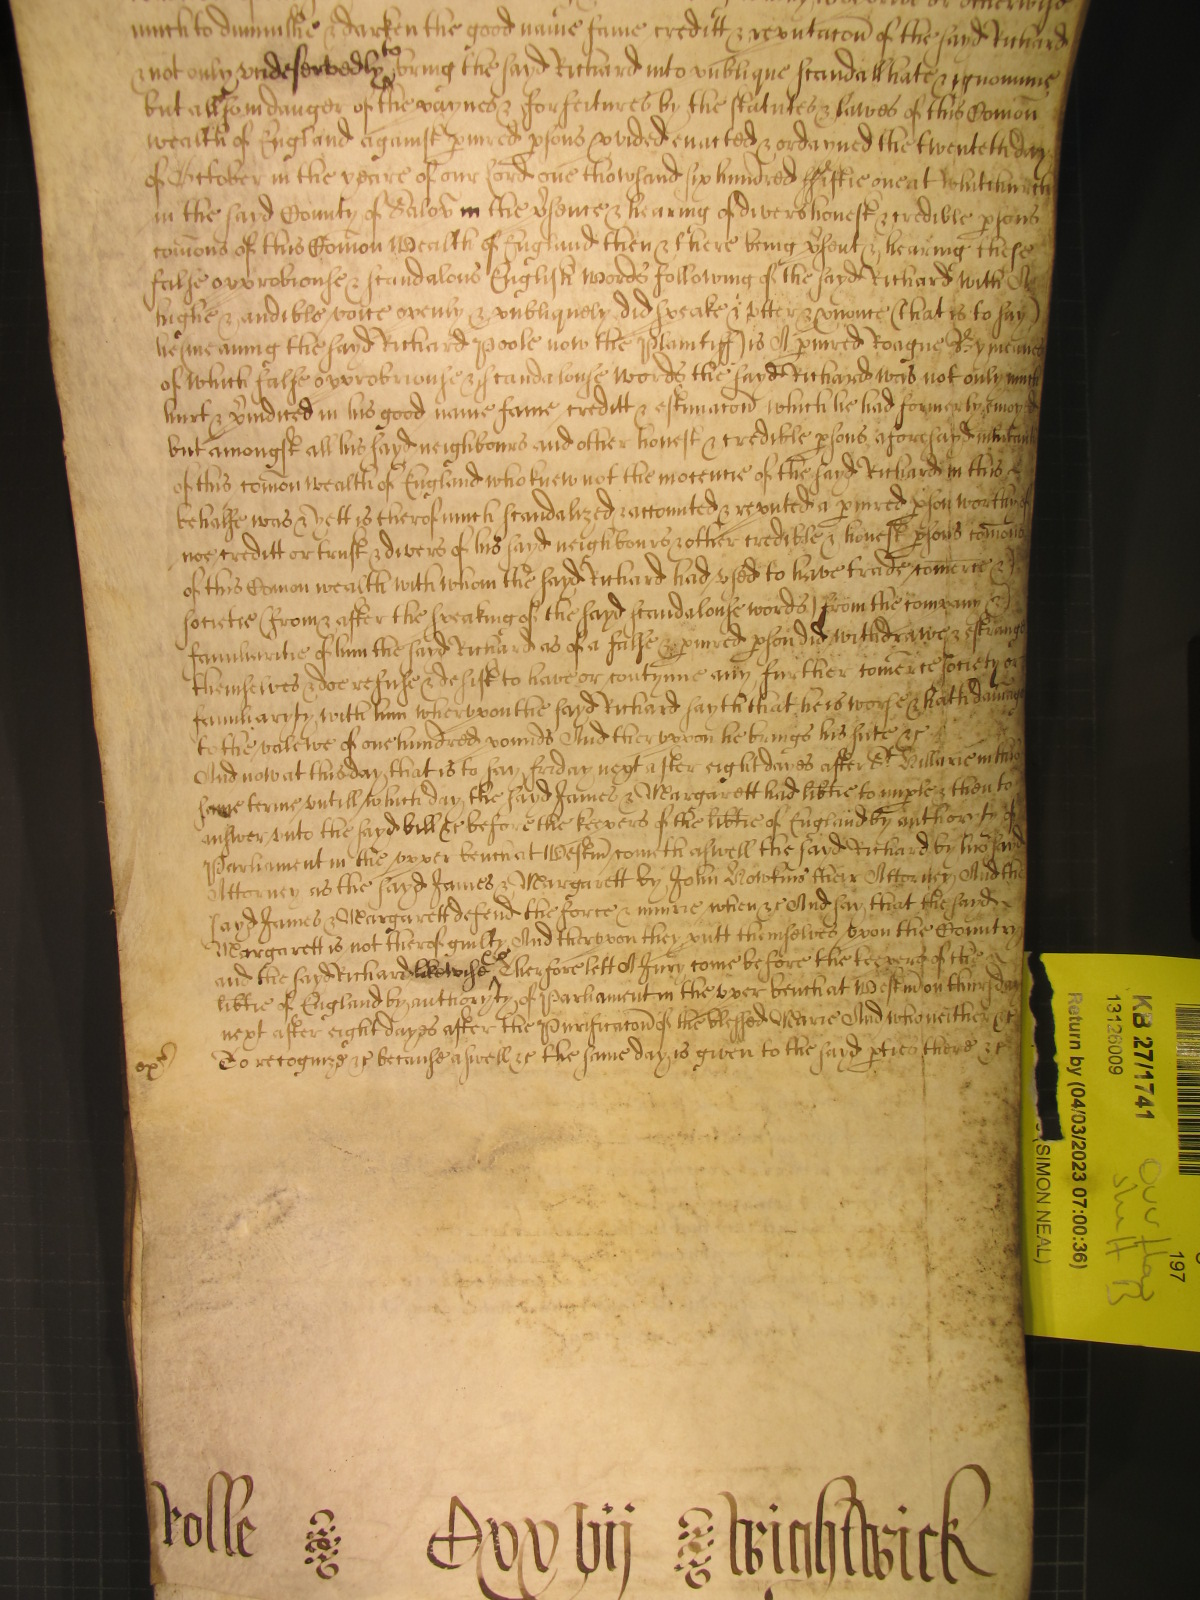 much to diminishe & darken the good name fame creditt & reputacon of the sayd Richard
& not only undeservedly to bring the sayd Richard into publique scandall hate & ignominie
but allso in danger of the paynes & forfeitures by the statutes & lawes of this Comon
wealth of England against piured psons pvided enacted & ordayned the twenteth day
of October in the yeare of our Lord one thowsand six hundred fiftie one at Whitchurch
in the said County of Salop in the psence & hearing of divers honest & credible psons
comons of this Comon Wealth of England then & there being psent & hearing these
false opprobriouse & scandalous English words following of the sayd Richard with A
highe & audible voice openly & publiquely did speake utter & pnonce (that is to say)
he (meaning the sayd Richard Poole now the Plaintiff) is A piured Roague By meanes
of which false opprobriouse & scandalouse words the sayd Richard was not only much
hurt & piudiced in his good name fame creditt & estimacon which he had formerly enioyed
but amongst all his sayd neighbours and other honest & credible psons aforesayd
of this comon wealth of England who knew not the inocencie of the sayd Richard in this
behalfe was & yett is therof much scandalized & accounted & reputed a piured pson worthy of
noe creditt or trust & divers of his sayd neighbours & other credible & honest psons comons
of this Comon wealth with whom the sayd Richard had used to have trade comerce &
societie (from & after the speaking of the sayd scandalouse words) from the company &
familiaritie of him the sayd Richard as of a false & piured pson did withdrawe & estrange
themselves & doe refuse & desist to have or contynue any further comerce society or
familiarity with him wherupon the sayd Richard sayth that he is worse & hath damage
to the valewe of one hundred pounds And therupon he brings his sute &c
And now at this day that is to say friday next after eight dayes after St Hillarie in this
same terme untill which day the sayd James & Margarett had libtie to imple & then to
answer unto the sayd bill &c before the keepers of the libtie of England by authority of
Parliament in the upper bench at Westm cometh aswell the sayd Richard by his said
Attorney as the sayd James & Margarett by John their Attorney And the
sayd James & Margarett defend the force & iniurie when &c And say that the said
Margarett is not therof guilty And therupon they putt themselves upon the Country
and the sayd Richard likewise &c Therfore lett A Jury come before the keepers of the
libtie of England by authority of Parliament in the upper bench at Westm on thursday
next after eight dayes after the Purificacon of the blessed Marie And who neither &c
To recognize &c because aswell &c the same day is given to the sayd pties there &c
rolle Cxxvij Wightwick
KB 27/1741
13126009
Return by (04/03/2023 07:00:36)
(SIMON NEAL)
197